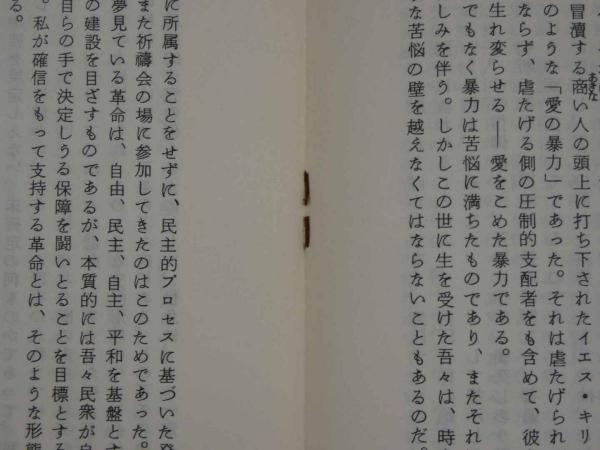 冒瀆する商い人の頭上に打ち下されたイエス・キリ
あきな
のような「愛の暴力」であった。それは虐たげられ
ならず、虐たげる側の圧制的支配者をも含めて、彼
生れ変らせる――愛をこめた暴力である。
でもなく暴力は苦悩に満ちたものであり、またそれ
しみを伴う。しかしこの世に生を受けた吾々は、時
な苦悩の壁を越えなくてはならないこともあるのだ。
に所属することをせずに、民主的プロセスに基づいた発
また祈禱会の場に参加してきたのはこのためであった。
夢見ている革命は、自由、民主、自主、平和を基盤とす
の建設を目ざすものであるが、本質的には吾々民衆が自
自らの手で決定しうる保障を闘いとることを目標とする
。私が確信をもって支持する革命とは、そのような形態
る。